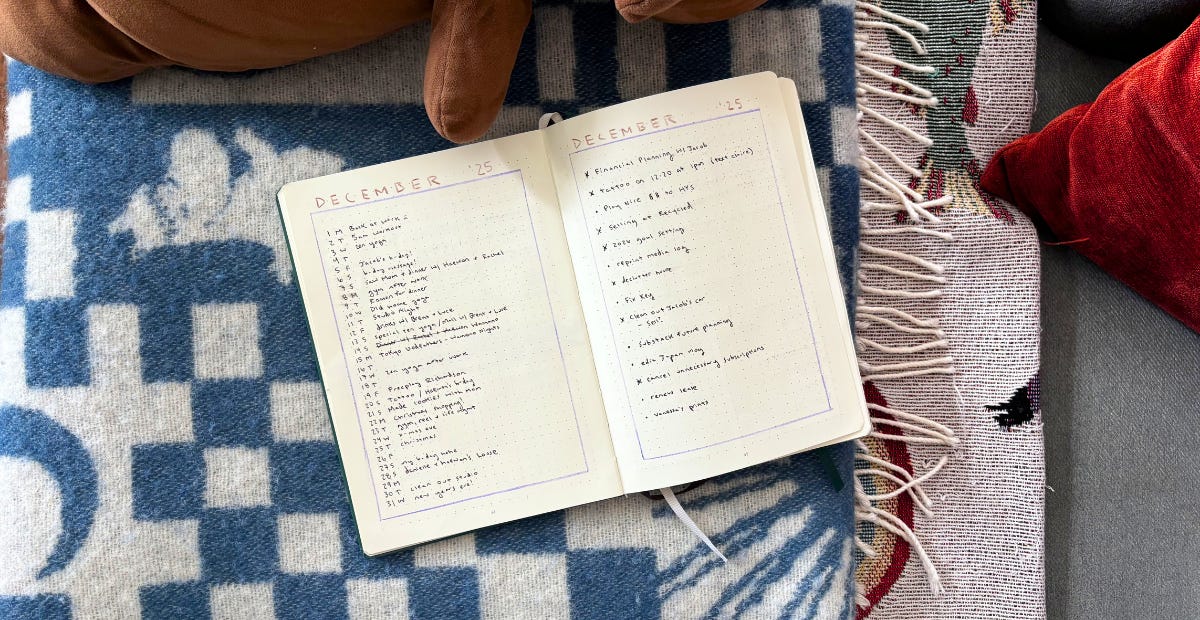 DECEMBER '25
1 M Back at work :
2 T Sam workout
3 W zen yoga
4 T
5 F Jacob's b-day!
6 S b-day massage!
7 S Saw Mom + dinner w/ Hoeman + Rachel
8 M gym after work
9 T for dinner
10 W Old home yoga
11 T Studio Night
12 F drinks w/ Brena + Luce
13 S special zen yoga / w/ Brena + Luce
14 S
15 M Tokyo
16 T
17 W zen yoga after work
18 T
19 F Prepping Richardson
20 S Tattoo / b-day
21 S Made cookies with mom
22 M Christmas shopping!
23 T gym, + life night
24 W x-mas eve
25 T christmas
26 F
27 S my b-day
28 S + Hoeman's house
29 M
30 T clean out studio
31 W new years eve!
DECEMBER '25
x Financial Planning w/ Jacob
x Tattoo on 12-20 at 1pm (text claire)
• Play Nice BB to HYS
x Selling at Recycled
x 2026 goal setting
• reprint media log
x declutter home
• Fix Key
x Clean out Jacob's car
- Soil?
• Substack future planning
• edit Japan vlog
x cancel unnecessary subscriptions
• renew lease
• vanessa's prints